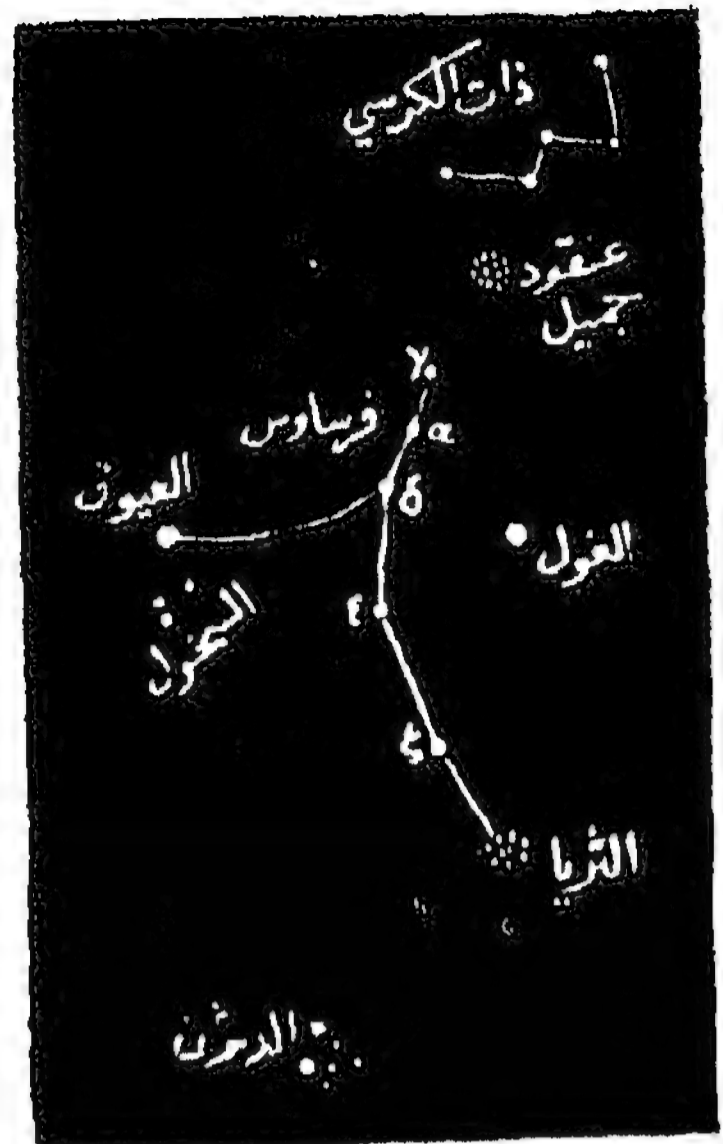 ذات الكرسي
عنقود
جميل
γ
α
فرساوس
العيوق
δ
الغول
ε
ζ
الثريا
الدبران